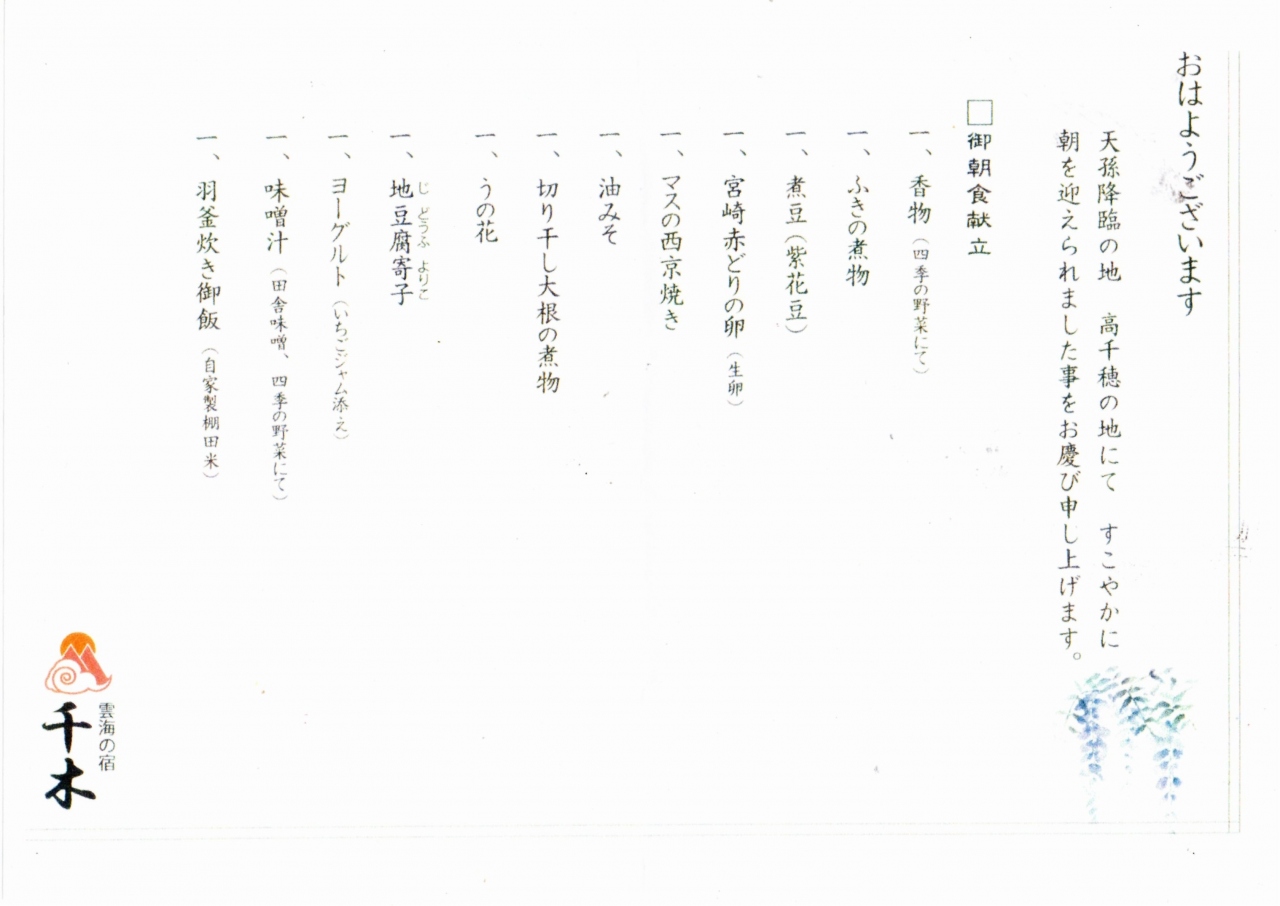 おはようございます
天孫降臨の地　高千穂の地にて　すこやかに
朝を迎えられました事をお慶び申し上げます。
□御朝食献立
一、香物（四季の野菜にて）
一、ふきの煮物
一、煮豆（紫花豆）
一、宮崎赤どりの卵（生卵）
一、マスの西京焼き
一、油みそ
一、切り干し大根の煮物
一、うの花
一、地豆腐寄子
じ どうふ よりこ
一、ヨーグルト（いちごジャム添え）
一、味噌汁（田舎味噌、四季の野菜にて）
一、羽釜炊き御飯（自家製棚田米）
雲海の宿
千木